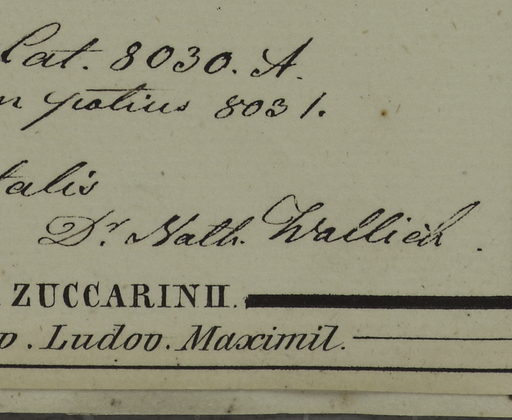 Cat. 8030. A.
n potius 8031.
talis
Dr. Nath. Wallich.
ZUCCARINII.
o. Ludov. Maximil.